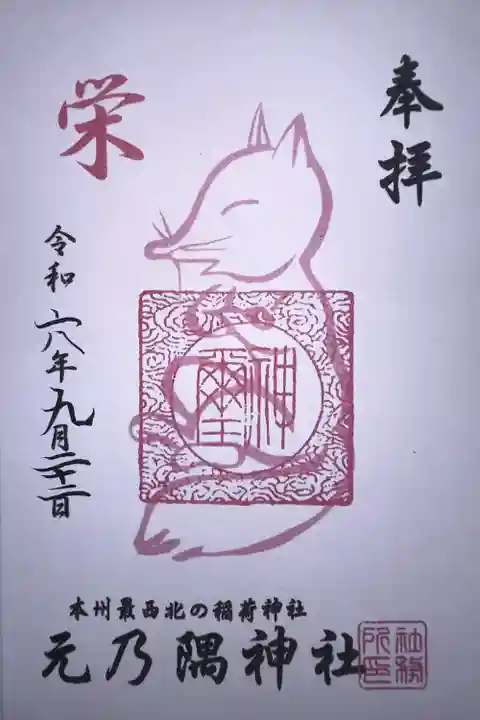 奉拝
栄
神璽
令和六八年九月二十二日
本州最西北の稲荷神社
元乃隅神社
社務所印